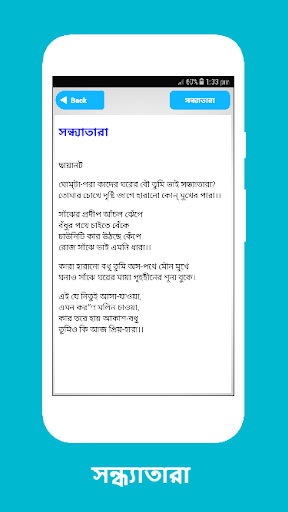 60% 1:33 pm
Back
সন্ধ্যাতারা
সন্ধ্যাতারা
ছায়ানট
ঘোম্‌টা-পরা কাদের ঘরের বৌ তুমি ভাই সন্ধ্যাতারা?
তোমার চোখে দৃষ্টি জাগে হারানো কোন্‌ মুখের পারা।।
সাঁঝের প্রদীপ আঁচল ঝেঁপে
বঁধুর পথে চাইতে বেঁকে
চাউনিটি কার উঠছে কেঁপে
রোজ সাঁঝে ভাই এমনি ধারা।।
কারা হারানো বধূ তুমি অস-পথে মৌন মুখে
ঘনাও সাঁঝে ঘরের মায়া গৃহহীনের শূন্য বুকে।
এই যে নিতুই আসা-যাওয়া,
এমন কর"ণ মলিন চাওয়া,
কার তরে হায় আকাশ-বধূ
তুমিও কি আজ প্রিয়-হারা।।
সন্ধ্যাতারা